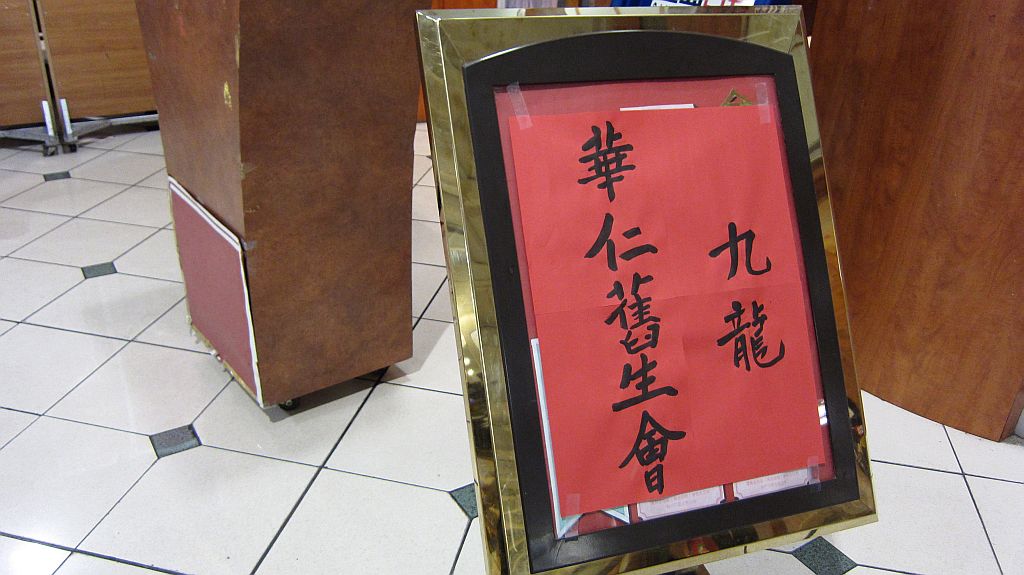 九龍
華仁舊生會